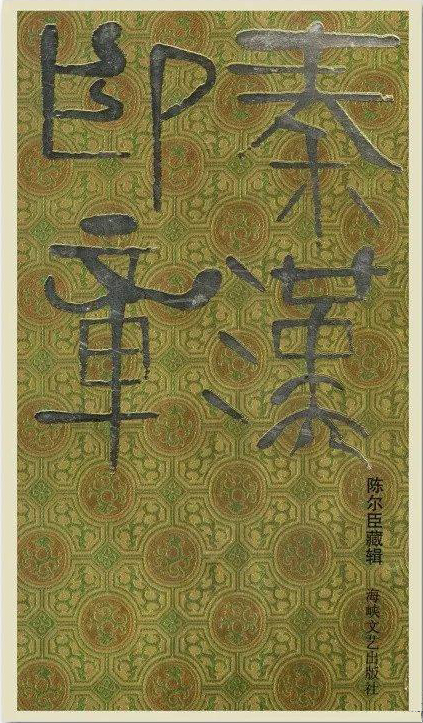 秦漢
印章
陈尔臣藏辑
海峡文艺出版社